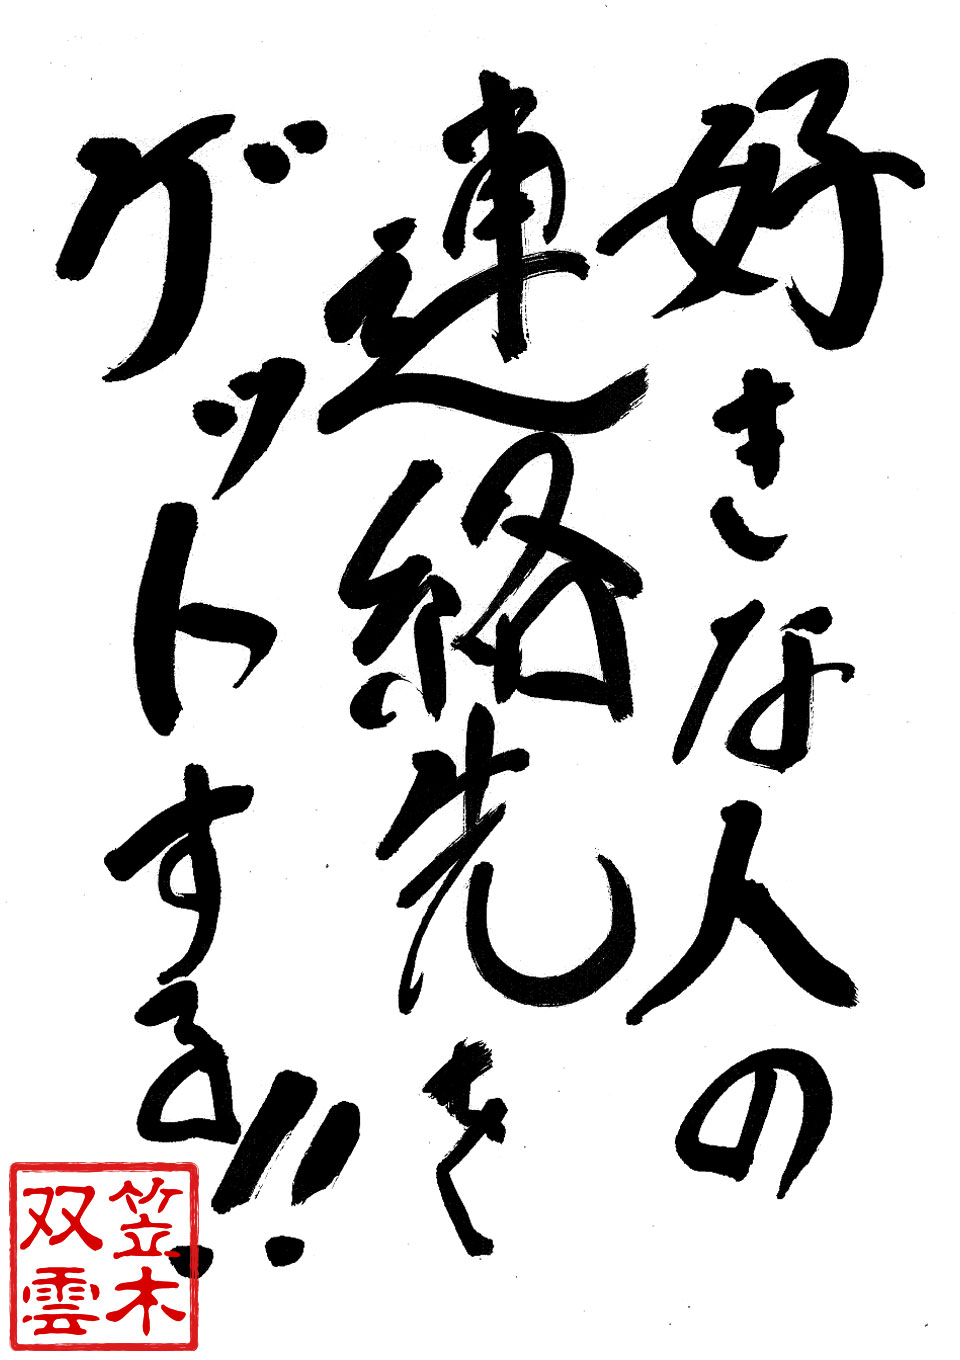 好きな人の
連絡先を
ゲットする!!
笠木
双雲